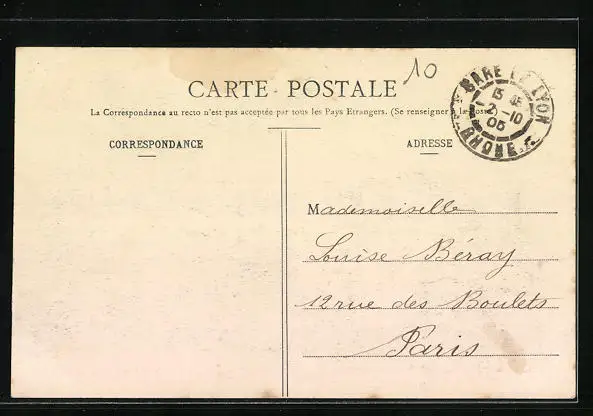 10
CARTE POSTALE
La Correspondance au recto n'est pas acceptée par tous les Pays Etrangers. (Se renseigner à la Poste)
CORRESPONDANCE
ADRESSE
GARE DE LYON
15 E
2-10
05
RHONE
Mademoiselle
Louise Béray
12 rue des Boulets
Paris